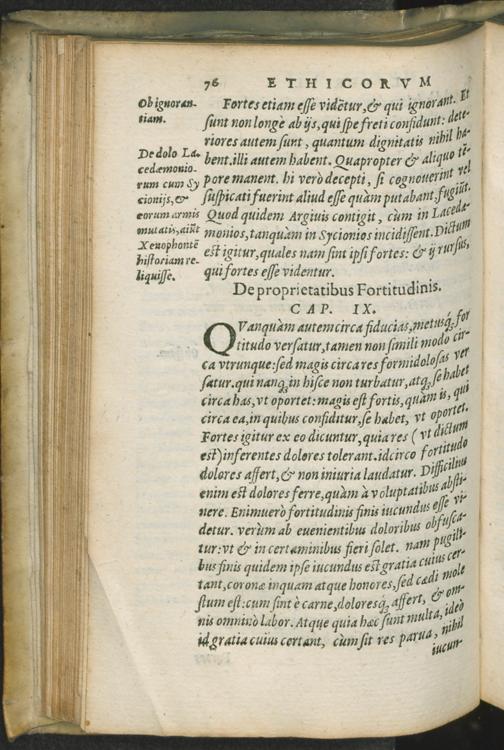 76 ETHICORVM
Ob ignoran-
tiam.
De dolo La-
cedæmonio-
rum cum Sy
cionijs, &
eorum armis
mutatis, aiūt
Xenophontē
historiam re-
liquisse.
Fortes etiam esse vidētur, & qui ignorant. Et
sunt non longè ab ijs, qui spe freti confidunt: dete-
riores autem sunt, quantum dignitatis nihil ha-
bent. illi autem habent. Quapropter & aliquo tē-
pore manent. hi verò decepti, si cognouerint vel
suspicati fuerint aliud esse quàm putabant, fugiūt.
Quod quidem Argiuis contigit, cùm in Lacedæ-
monios, tanquàm in Sycionios incidissent. Dictum
est igitur, quales nam sint ipsi fortes: & ij rursus,
qui fortes esse videntur.
De proprietatibus Fortitudinis.
CAP. IX.
QVanquàm autem circa fiducias, metusq́, for
titudo versatur, tamen non simili modo cir-
ca vtrunque: sed magis circa res formidolosas ver
satur. qui nanq, in hisce non turbatur, atq, se habet
circa has, vt oportet: magis est fortis, quàm is, qui
circa ea, in quibus confiditur, se habet, vt oportet.
Fortes igitur ex eo dicuntur, quia res ( vt dictum
est) inferentes dolores tolerant. idcirco fortitudo
dolores affert, & non iniuria laudatur. Difficilius
enim est dolores ferre, quàm à voluptatibus absti-
nere. Enimuerò fortitudinis finis iucundus esse vi-
detur. verùm ab euenientibus doloribus obfusca-
tur: vt & in certaminibus fieri solet. nam pugili-
bus finis quidem ipse iucundus est gratia cuius cer-
tant, coronæ inquam atque honores, sed cædi mole
stum est: cùm sint è carne, doloresq́, affert, & om-
nis omninò labor. Atque quia hæc sunt multa, ideò
id gratia cuius certant, cùm sit res parua, nihil
iucun-